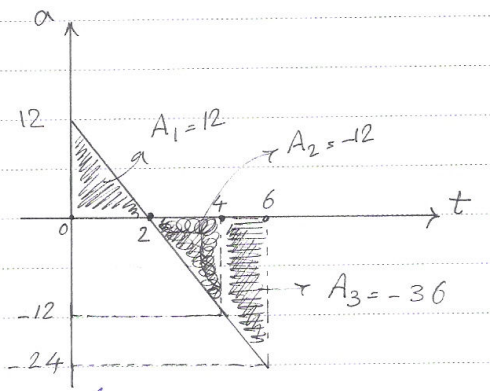 a
12
A₁ = 12
a
A₂ = -12
0
2
4
6
t
-12
A₃ = -36
-24